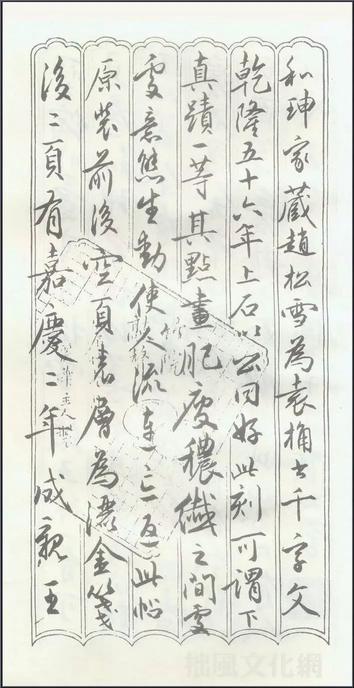 和珅家藏趙松雪為袁桷書千字文
乾隆五十六年上石以公同好此刻可謂下
真蹟一等其點畫肥瘦穠纖之間處
處意態生動使人流連忘返此帖
原裝前後空頁表層為灑金箋
後二頁有嘉慶二年成親王
拙風文化網